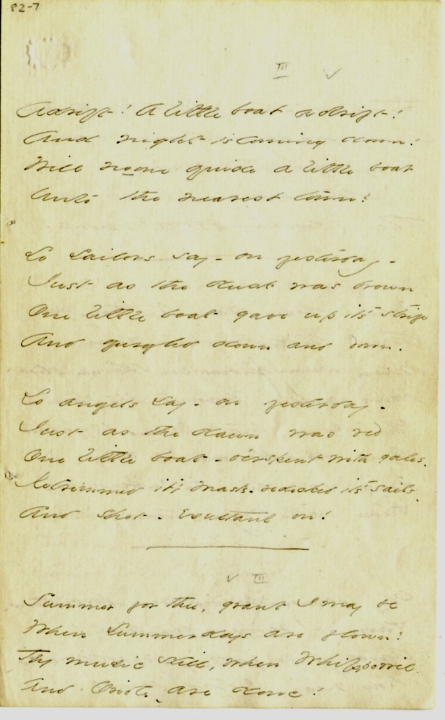 82-7
III
Adrift! A little boat adrift!
And night is coming down!
Will no one guide a little boat
Unto the nearest town?
So Sailors say - on yesterday -
Just as the dusk was brown
One little boat gave up it's strife
And gurgled down and down.
So angels say - on yesterday -
Just as the dawn was red
One little boat - o'erspent with gales -
Retrimmed it's masts - redecked it's sails -
And shot - exultant on!
III
Summer for thee, grant I may be
When Summer days are flown!
Thy music still, when Whippowil
And Oriole - are done!